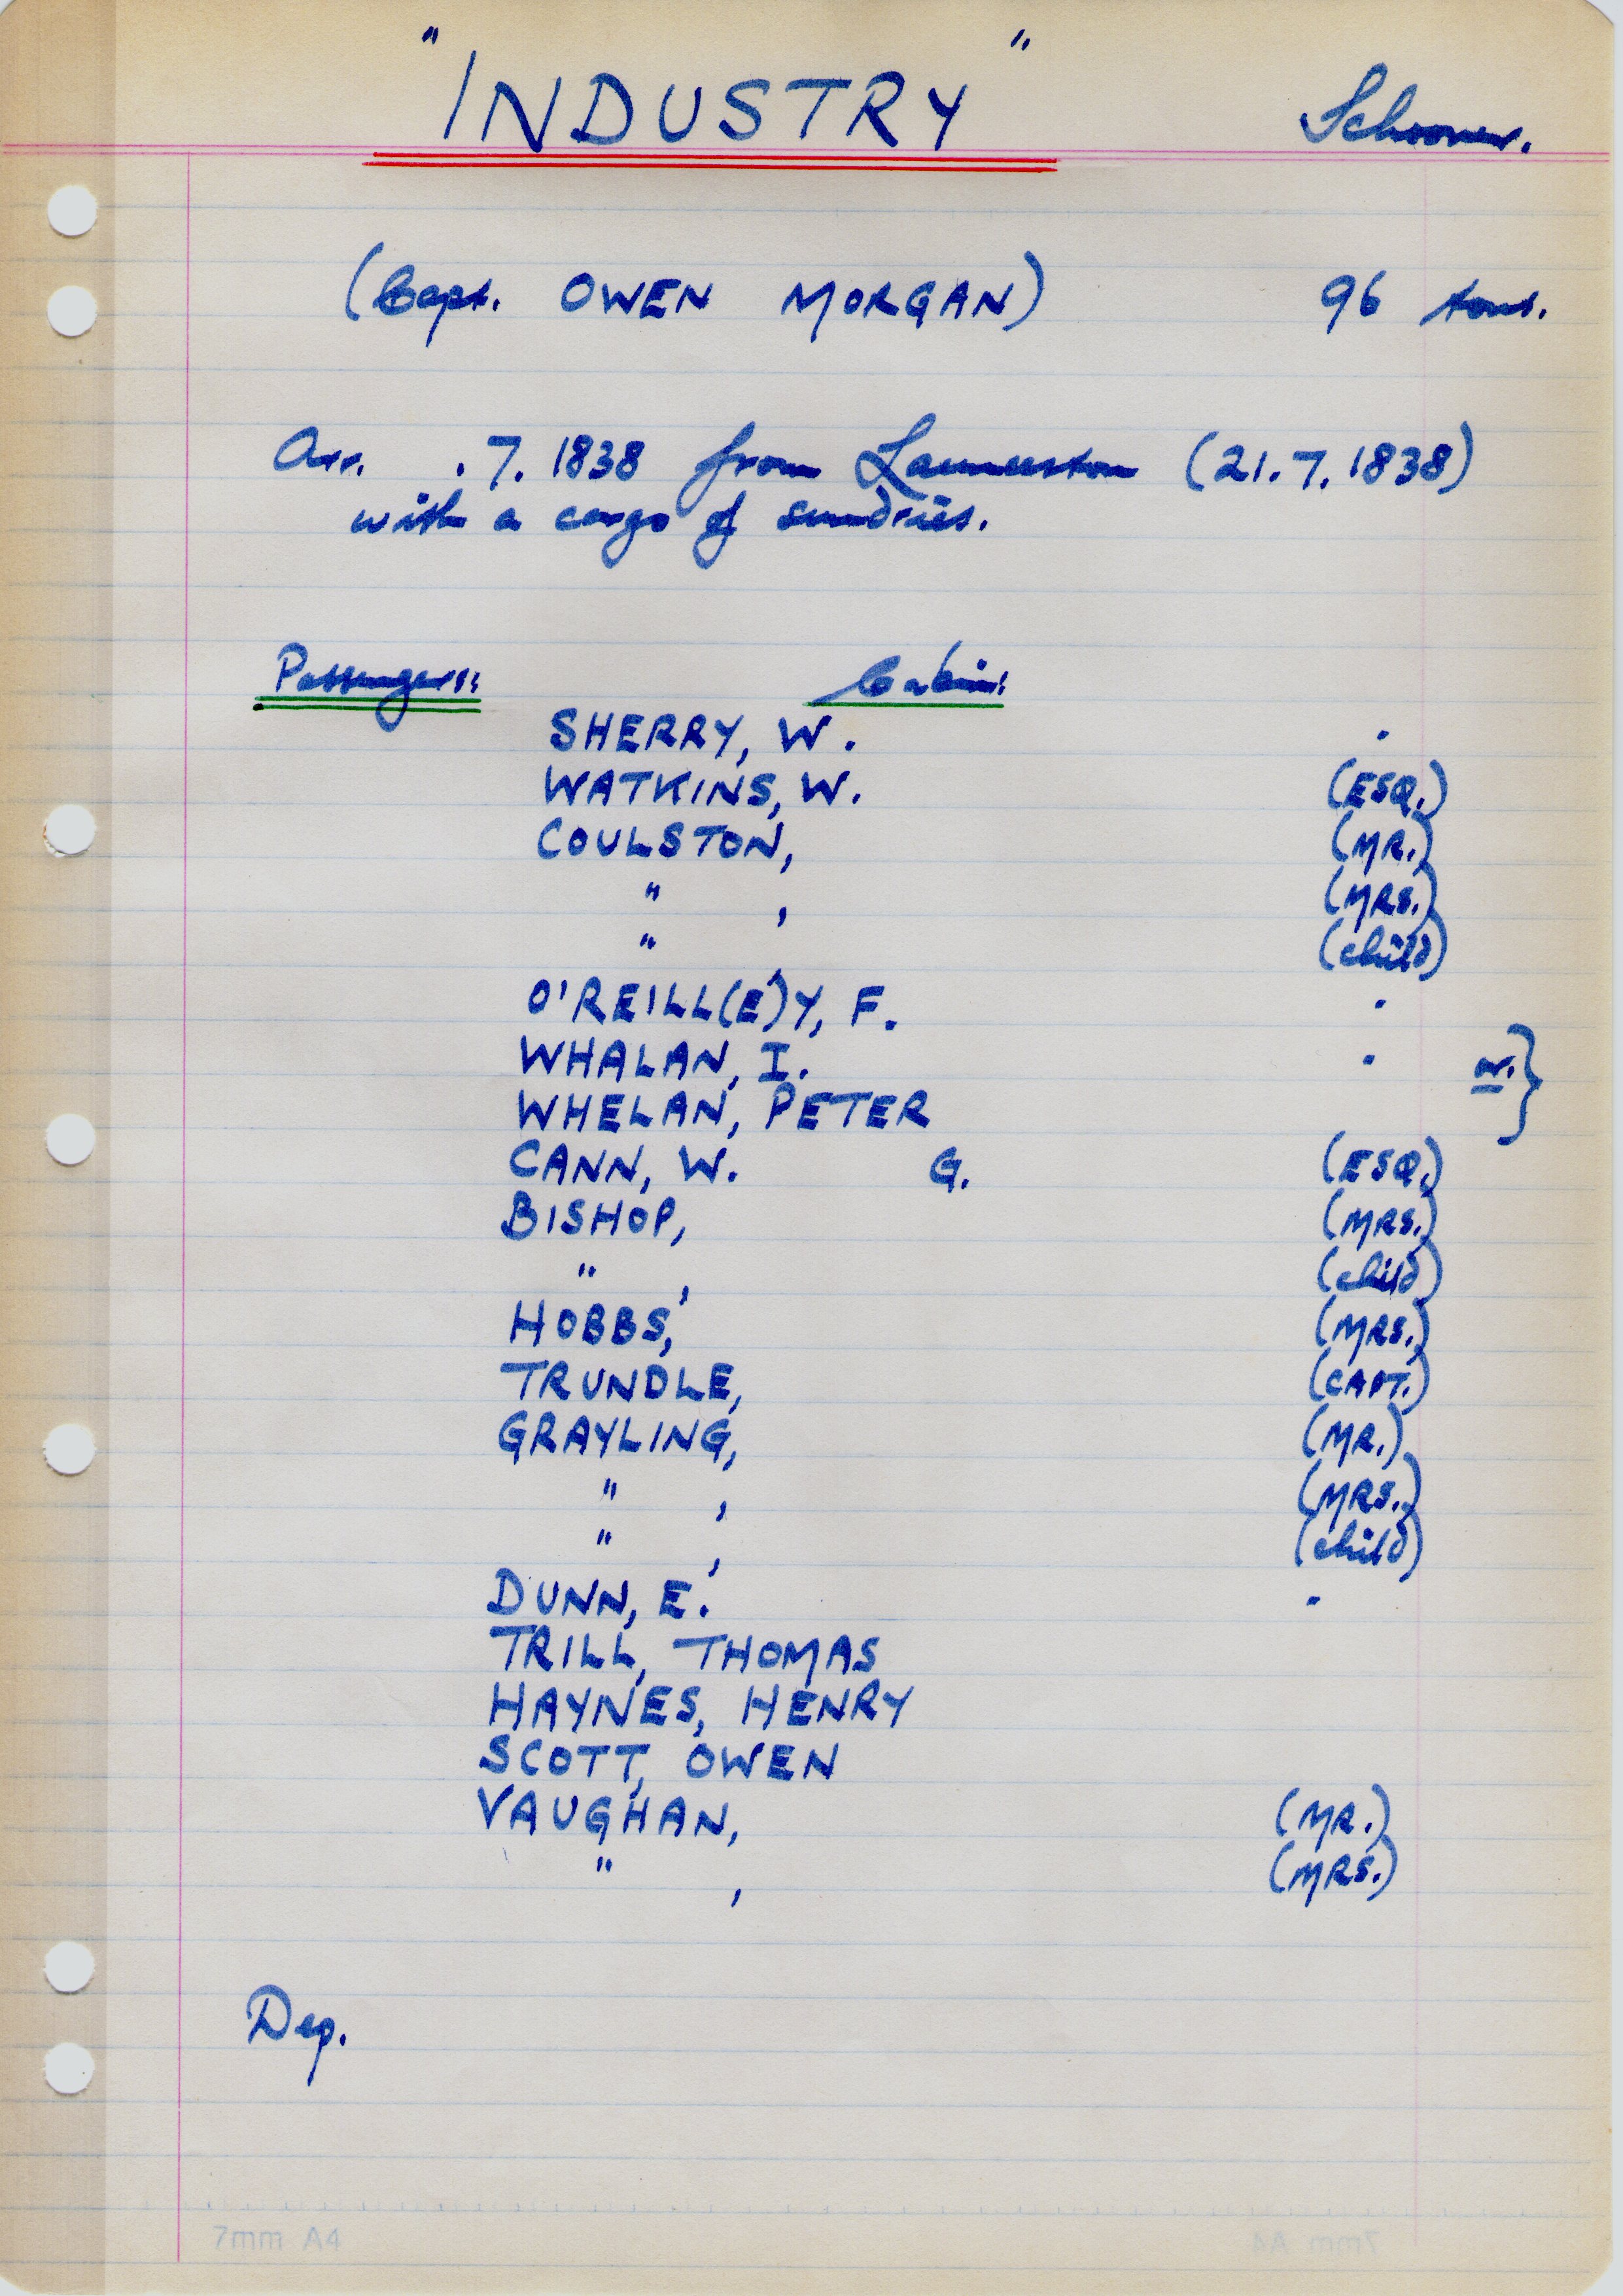 "INDUSTRY" Schooner.
(Capt. OWEN MORGAN) 96 tons.
Arr. .7.1838 from Launceston (21.7.1838)
with a cargo of sundries.
Passengers: Cabin:
SHERRY, W. .
WATKINS, W. (ESQ.)
COULSTON, (MR.)
" , (MRS.)
" , (child)
O'REILL(E)Y, F. .
WHALAN, I. . or. }
WHELAN, PETER
CANN, W. G. (ESQ.)
BISHOP, (MRS.)
" , (child)
HOBBS, (MRS.)
TRUNDLE, (CAPT.)
GRAYLING, (MR.)
" , (MRS.)
" , (child)
DUNN, E. .
TRILL, THOMAS
HAYNES, HENRY
SCOTT, OWEN
VAUGHAN, (MR.)
" , (MRS.)
Dep.
7mm A4